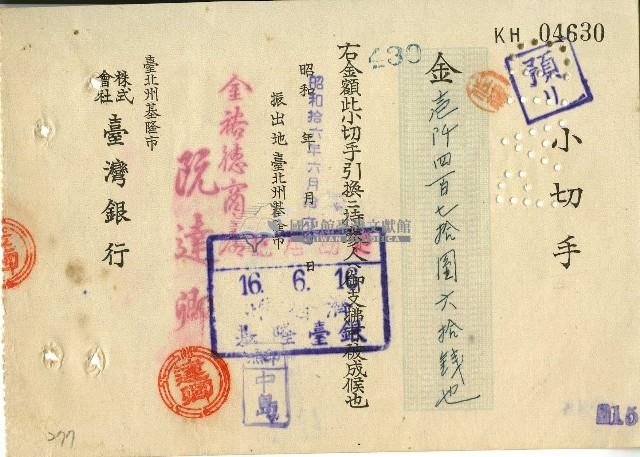 KH 04630
小切手
預リ
430
金壱阡四百七拾圓六拾銭也
右金額此小切手引換ニ持参人ヘ御支拂相成候也
昭和 年 月 日
昭和拾六年六月
振出地 臺北州基隆市
金裕德商店
阮達卿
臺北州基隆市
株式會社 臺灣銀行
16. 6. 16
中島
達卿
國史館臺灣文獻館
15
277